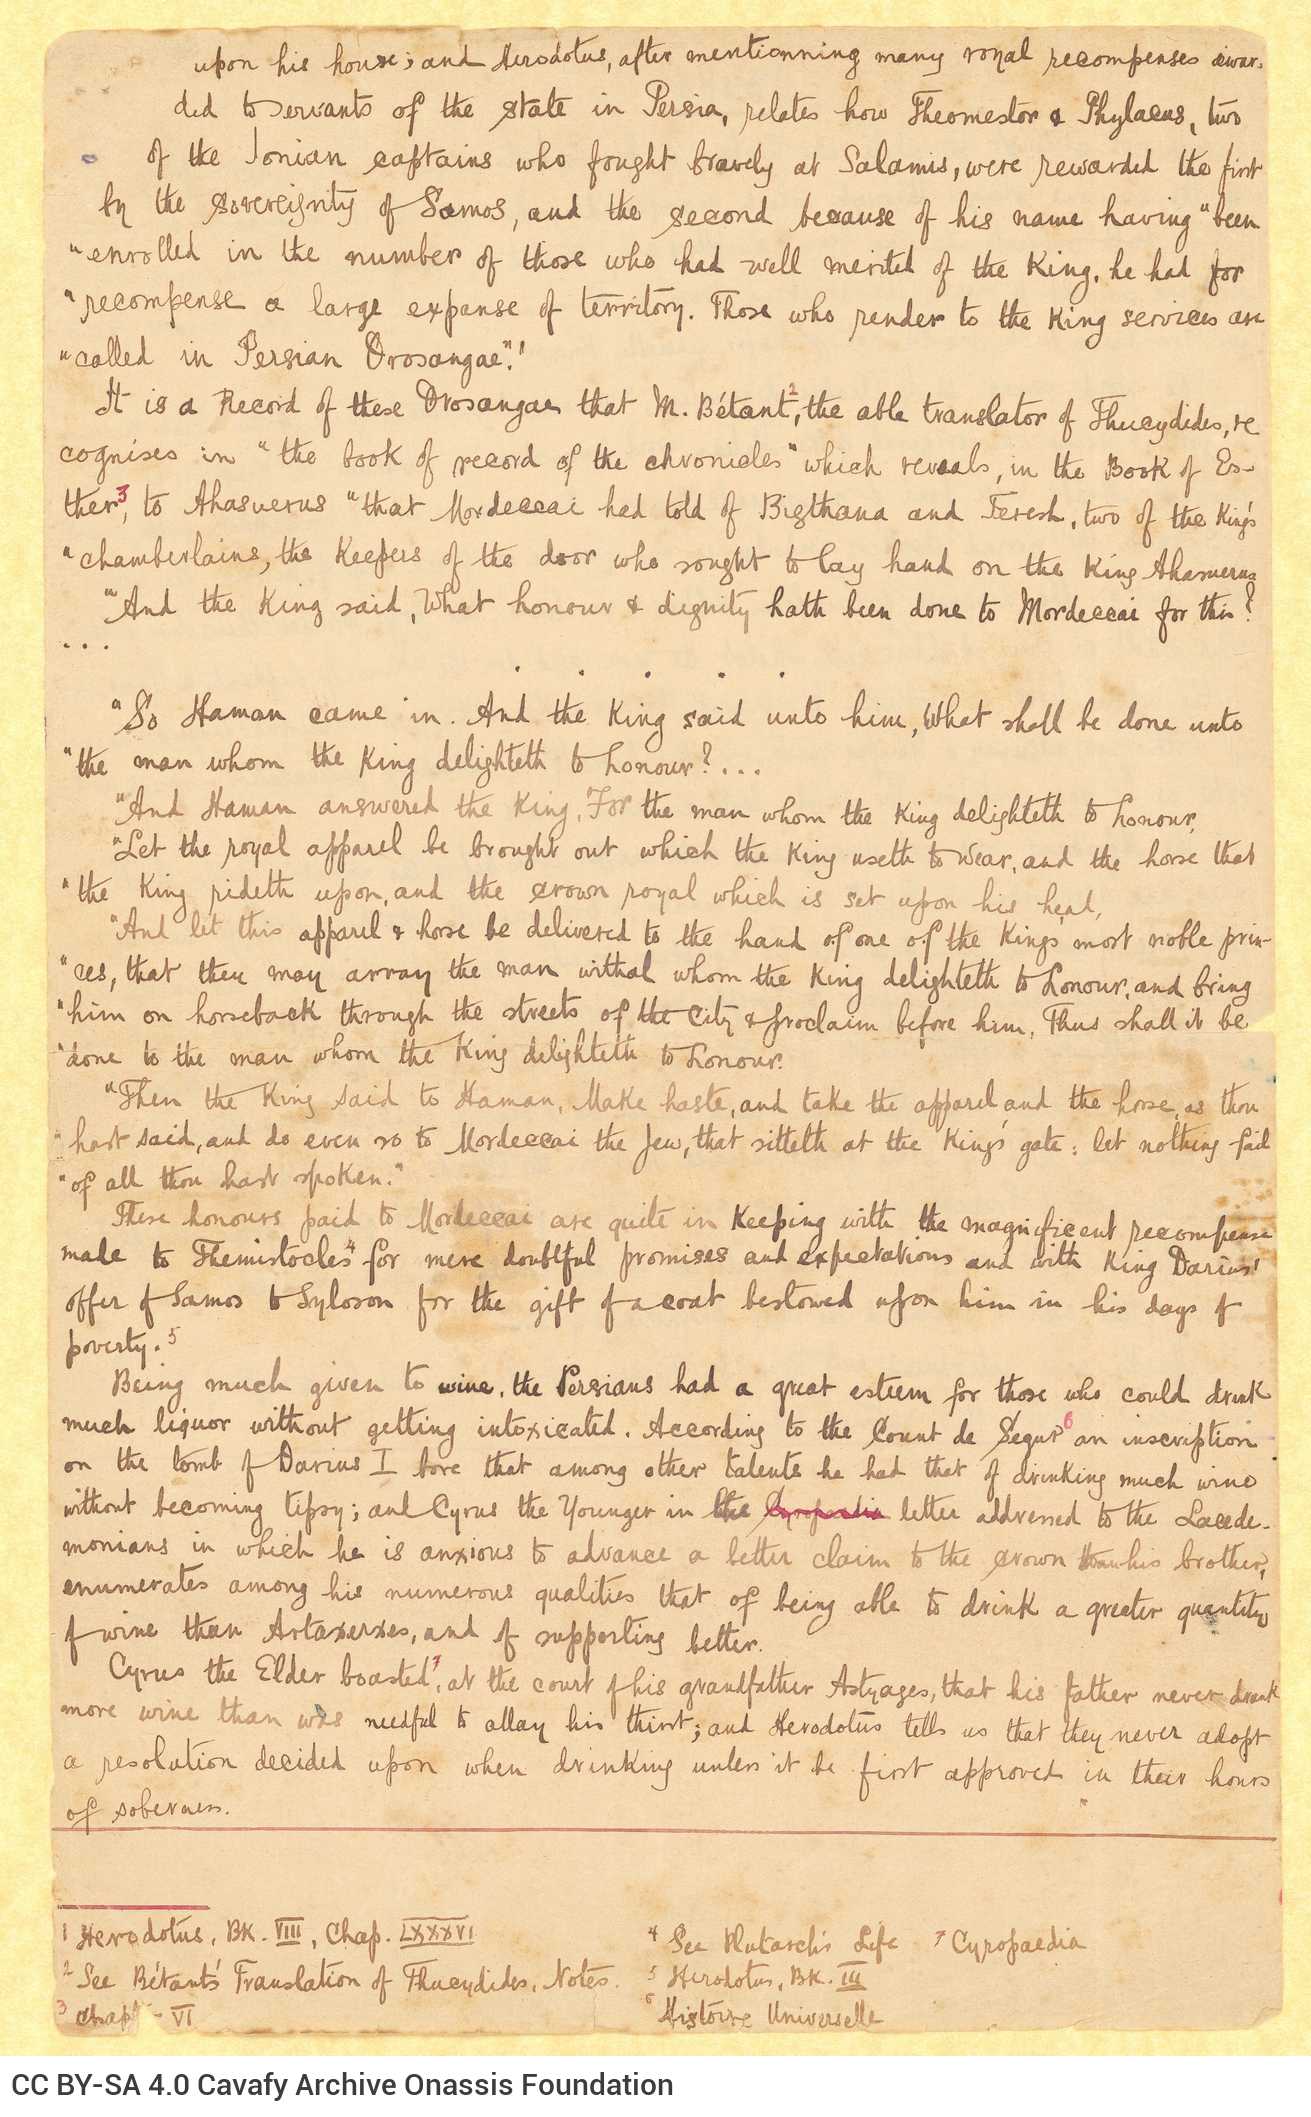 upon his house; and Herodotus, after mentionning many royal recompenses awar-
ded to servants of the state in Persia, relates how Theomestor & Phylacus, two
of the Ionian captains who fought bravely at Salamis, were rewarded the first
by the sovereignty of Samos, and the second because of his name having "been
"enrolled in the number of those who had well merited of the King, he had for
"recompense a large expanse of territory. Those who render to the King services are
"called in Persian Orosangae".1
It is a Record of these Orosangae that M. Bétant2, the able translator of Thucydides, re
cognises in "the book of record of the chronicles" which reveals, in the Book of Es-
ther3, to Ahasuerus "that Mordeccai had told of Bigthana and Teresh, two of the King's
"chamberlains, the Keepers of the door who sought to lay hand on the King Ahasuerus
"And the King said, What honour & dignity hath been done to Mordeccai for this?
...
. . . . .
"So Haman came in. And the King said unto him, What shall be done unto
"the man whom the King delighteth to honour? ...
"And Haman answered the King, For the man whom the King delighteth to honour,
"Let the royal apparel be brought out which the King useth to wear, and the horse that
"the King rideth upon, and the crown royal which is set upon his head,
"And let this apparel & horse be delivered to the hand of one of the King's most noble prin-
"ces, that they may array the man withal whom the King delighteth to honour, and bring
"him on horseback through the streets of the City & proclaim before him, Thus shall it be
"done to the man whom the King delighteth to honour.
"Then the King said to Haman, Make haste, and take the apparel and the horse, as thou
"hast said, and do even so to Mordeccai the Jew, that sitteth at the King's gate: let nothing fail
"of all thou hast spoken."
These honours paid to Mordeccai are quite in Keeping with the magnificent recompense
made to Themistocles4 for mere doubtful promises and expectations and with King Darius'
offer of Samos to Syloson for the gift of a coat bestowed upon him in his days of
poverty.5
Being much given to wine, the Persians had a great esteem for those who could drink
much liquor without getting intoxicated. According to the Count de Segur6 an inscription
on the tomb of Darius I bore that among other talents he had that of drinking much wine
without becoming tipsy; and Cyrus the Younger in the Cyropaedia letter addressed to the Lacede-
monians in which he is anxious to advance a better claim to the crown than his brother,
enumerates among his numerous qualities that of being able to drink a greater quantity
of wine than Artaxerxes, and of supporting better.
Cyrus the Elder boasted7, at the court of his grandfather Astyages, that his father never drank
more wine than was needful to allay his thirst; and Herodotus tells us that they never adopt
a resolution decided upon when drinking unless it be first approved in their hours
of soberness.
1 Herodotus, BK. VIII, Chap. LXXXVI
2 See Bétant's Translation of Thucydides, Notes.
3 Chap - VI
4 See Plutarch's Life
5 Herodotus, BK. III
6 Histoire Universelle
7 Cyropaedia
CC BY-SA 4.0 Cavafy Archive Onassis Foundation